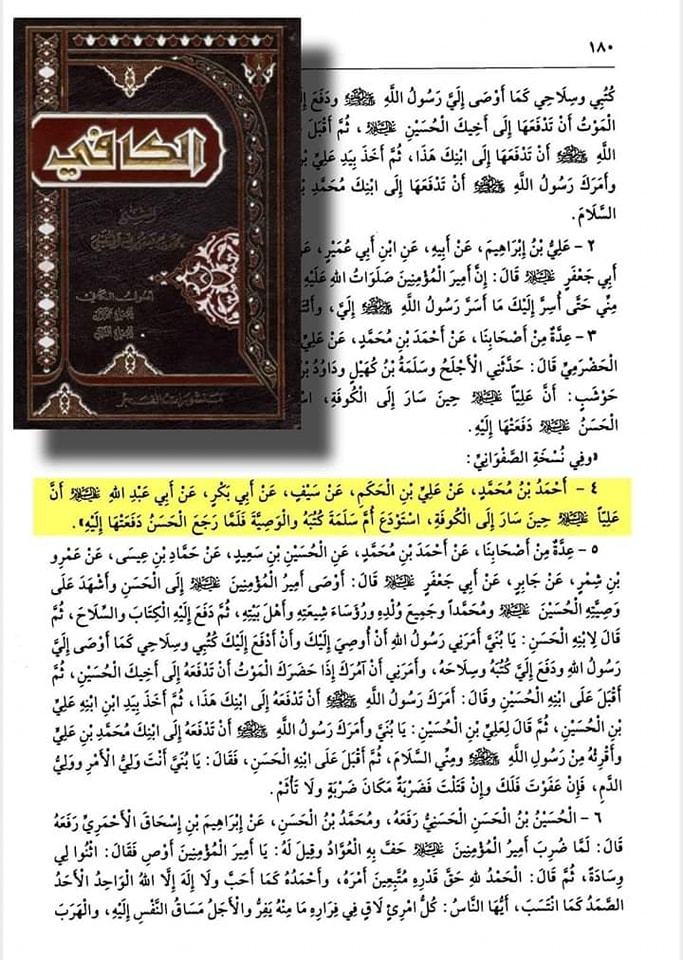 الكافي
أصول الكافي
منشورات الفجر
١٨٠
كُتُبِي وسِلَاحِي كَمَا أَوْصَى إِلَيَّ رَسُولُ اللَّهِ ﷺ ودَفَعَ إِلَيَّ
الْمَوْتُ أَنْ تَدْفَعَهَا إِلَى أَخِيكَ الْحُسَيْنِ عَلَيْهِ السَّلَامُ، ثُمَّ أَقْبَلَ
اللَّهِ ﷺ أَنْ تَدْفَعَهَا إِلَى ابْنِكَ هَذَا، ثُمَّ أَخَذَ بِيَدِ عَلِيِّ بْنِ
وأَمَرَكَ رَسُولُ اللَّهِ ﷺ أَنْ تَدْفَعَهَا إِلَى ابْنِكَ مُحَمَّدِ بْنِ
السَّلَامَ.
٢ - عَلِيُّ بْنُ إِبْرَاهِيمَ، عَنْ أَبِيهِ، عَنِ ابْنِ أَبِي عُمَيْرٍ، عَنْ
أَبِي جَعْفَرٍ عَلَيْهِ السَّلَامُ قَالَ: إِنَّ أَمِيرَ الْمُؤْمِنِينَ صَلَوَاتُ اللهِ عَلَيْهِ
مِنِّي حَتَّى أُسِرَّ إِلَيْكَ مَا أَسَرَّ رَسُولُ اللَّهِ ﷺ إِلَيَّ،
٣ - عِدَّةٌ مِنْ أَصْحَابِنَا، عَنْ أَحْمَدَ بْنِ مُحَمَّدٍ، عَنْ عَلِيِّ
الْحَضْرَمِيِّ قَالَ: حَدَّثَنِي الْأَجْلَحُ وسَلَمَةُ بْنُ كُهَيْلٍ ودَاوُدُ بْنُ
حَوْشَبٍ: أَنَّ عَلِيّاً عَلَيْهِ السَّلَامُ حِينَ سَارَ إِلَى الْكُوفَةِ،
الْحَسَنُ عَلَيْهِ السَّلَامُ دَفَعَتْهَا إِلَيْهِ.
«وفِي نُسْخَةِ الصَّفْوَانِيِّ:
٤ - أَحْمَدُ بْنُ مُحَمَّدٍ، عَنْ عَلِيِّ بْنِ الْحَكَمِ، عَنْ سَيْفٍ، عَنْ أَبِي بَكْرٍ، عَنْ أَبِي عَبْدِ اللهِ عَلَيْهِ السَّلَامُ أَنَّ
عَلِيّاً عَلَيْهِ السَّلَامُ حِينَ سَارَ إِلَى الْكُوفَةِ، اسْتَوْدَعَ أُمَّ سَلَمَةَ كُتُبَهُ والْوَصِيَّةَ فَلَمَّا رَجَعَ الْحَسَنُ دَفَعَتْهَا إِلَيْهِ».
٥ - عِدَّةٌ مِنْ أَصْحَابِنَا، عَنْ أَحْمَدَ بْنِ مُحَمَّدٍ، عَنِ الْحُسَيْنِ بْنِ سَعِيدٍ، عَنْ حَمَّادِ بْنِ عِيسَى، عَنْ عَمْرِو
بْنِ شِمْرٍ، عَنْ جَابِرٍ، عَنْ أَبِي جَعْفَرٍ عَلَيْهِ السَّلَامُ قَالَ: أَوْصَى أَمِيرُ الْمُؤْمِنِينَ عَلَيْهِ السَّلَامُ إِلَى الْحَسَنِ وأَشْهَدَ عَلَى
وَصِيَّتِهِ الْحُسَيْنَ عَلَيْهِ السَّلَامُ ومُحَمَّداً وجَمِيعَ وُلْدِهِ ورُؤَسَاءَ شِيعَتِهِ وأَهْلَ بَيْتِهِ، ثُمَّ دَفَعَ إِلَيْهِ الْكِتَابَ والسِّلَاحَ، ثُمَّ
قَالَ لِابْنِهِ الْحَسَنِ: يَا بُنَيَّ أَمَرَنِي رَسُولُ اللهِ أَنْ أُوصِيَ إِلَيْكَ وأَنْ أَدْفَعَ إِلَيْكَ كُتُبِي وسِلَاحِي كَمَا أَوْصَى إِلَيَّ
رَسُولُ اللهِ ودَفَعَ إِلَيَّ كُتُبَهُ وسِلَاحَهُ، وأَمَرَنِي أَنْ آمُرَكَ إِذَا حَضَرَكَ الْمَوْتُ أَنْ تَدْفَعَهُ إِلَى أَخِيكَ الْحُسَيْنِ، ثُمَّ
أَقْبَلَ عَلَى ابْنِهِ الْحُسَيْنِ وقَالَ: أَمَرَكَ رَسُولُ اللَّهِ ﷺ أَنْ تَدْفَعَهُ إِلَى ابْنِكَ هَذَا، ثُمَّ أَخَذَ بِيَدِ ابْنِ ابْنِهِ عَلِيِّ
بْنِ الْحُسَيْنِ، ثُمَّ قَالَ لِعَلِيِّ بْنِ الْحُسَيْنِ: يَا بُنَيَّ وأَمَرَكَ رَسُولُ اللَّهِ ﷺ أَنْ تَدْفَعَهُ إِلَى ابْنِكَ مُحَمَّدِ بْنِ عَلِيٍّ
وأَقْرِئْهُ مِنْ رَسُولِ اللَّهِ ﷺ ومِنِّي السَّلَامَ، ثُمَّ أَقْبَلَ عَلَى ابْنِهِ الْحَسَنِ، فَقَالَ: يَا بُنَيَّ أَنْتَ وَلِيُّ الْأَمْرِ ووَلِيُّ
الدَّمِ، فَإِنْ عَفَوْتَ فَلَكَ وإِنْ قَتَلْتَ فَضَرْبَةٌ مَكَانَ ضَرْبَةٍ ولَا تَأْثَمْ.
٦ - الْحُسَيْنُ بْنُ الْحَسَنِ الْحَسَنِيُّ رَفَعَهُ، ومُحَمَّدُ بْنُ الْحَسَنِ، عَنْ إِبْرَاهِيمَ بْنِ إِسْحَاقَ الْأَحْمَرِيِّ رَفَعَهُ
قَالَ: لَمَّا ضُرِبَ أَمِيرُ الْمُؤْمِنِينَ عَلَيْهِ السَّلَامُ حَفَّ بِهِ الْعُوَّادُ وقِيلَ لَهُ: يَا أَمِيرَ الْمُؤْمِنِينَ أَوْصِ فَقَالَ: اثْنُوا لِي
وِسَادَةً، ثُمَّ قَالَ: الْحَمْدُ لِلهِ حَقَّ قَدْرِهِ مُتَّبِعِينَ أَمْرَهُ، وأَحْمَدُهُ كَمَا أَحَبَّ ولَا إِلَهَ إِلَّا اللهُ الْوَاحِدُ الْأَحَدُ
الصَّمَدُ كَمَا انْتَسَبَ، أَيُّهَا النَّاسُ: كُلُّ امْرِئٍ لَاقٍ فِي فِرَارِهِ مَا مِنْهُ يَفِرُّ والْأَجَلُ مَسَاقُ النَّفْسِ إِلَيْهِ، والْهَرَبَ